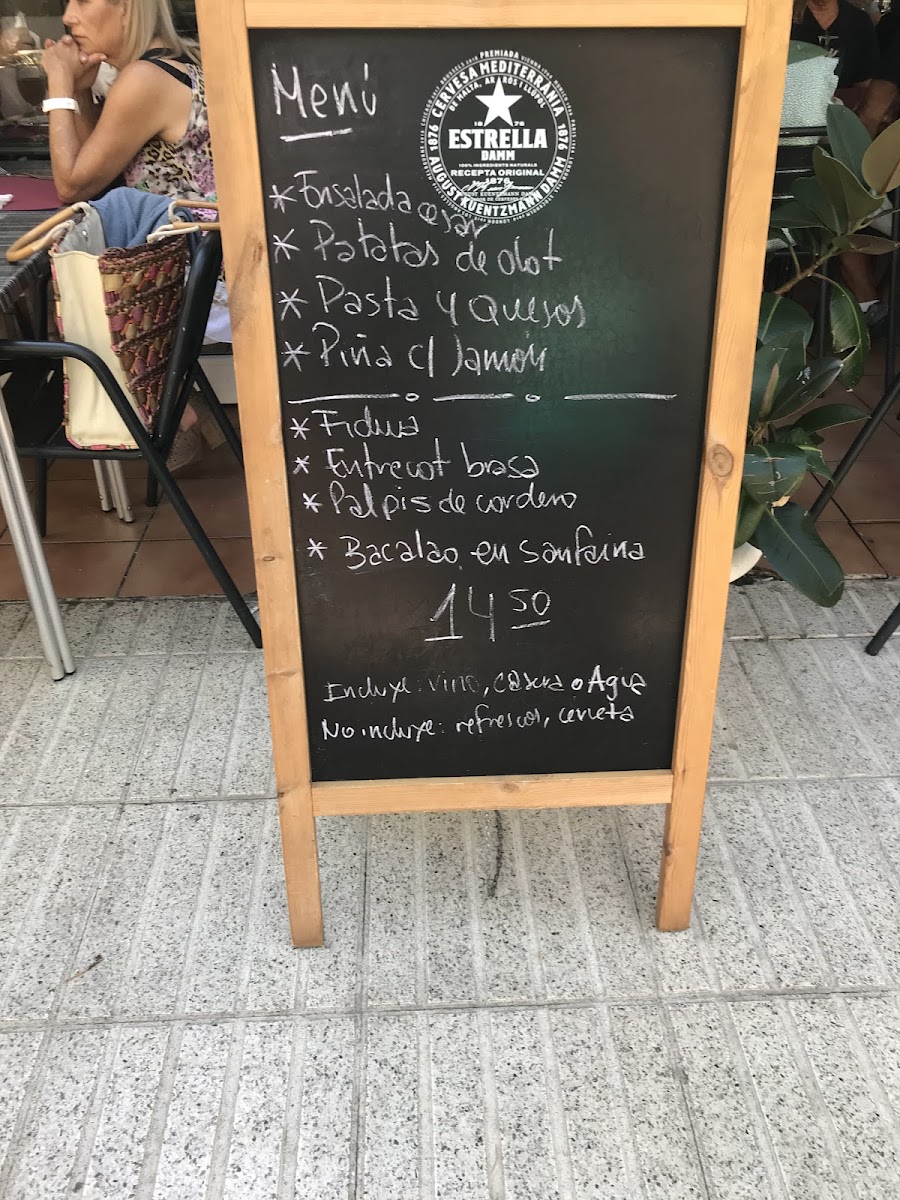 Menú
PREMIADA
CERVESA MEDITERRÀNIA
DE MALTA, ARRÒS I LLÚPOL
1876
ESTRELLA
DAMM
100% INGREDIENTS NATURALS
RECEPTA ORIGINAL
1876
AUGUST KUENTZMANN DAMM
1876 AUGUST KUENTZMANN DAMM 1876
* Ensalada cesar
* Patatas de olot
* Pasta 4 quesos
* Piña c/ Jamón
* Fidua
* Entrecot brasa
* Palpis de cordero
* Bacalao en sanfaina
14 50
Incluye: vino, casera o Agua
No incluye: refrescos, cerveta